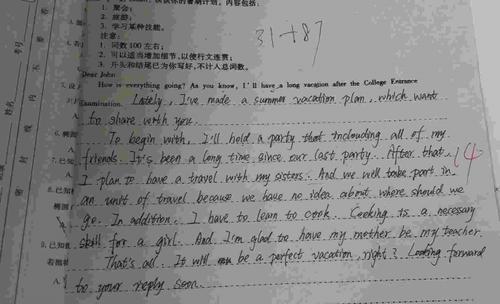 暑期计划。内容包括:
1. 聚会;
2. 旅游;
3. 学习某种技能。
注意:
1. 词数100左右;
2. 可以适当增加细节,以使行文连贯;
3. 开头和结尾已为你写好,不计入总词数。
31+87
Dear John:
How is everything going? As you know, I'll have a long vacation after the College Entrance
Examination. Lately, I've made a summer vacation plan, which want
to share with you.
To begin with, I'll hold a party that including all of my
friends. It's been a long time since our last party. After that, 14
I plan to have a travel with my sisters. And we will take part in
an unit of travel because we have no idea about where should we
go. In addition, I have to lean to cook. Cooking is a necessary
skill for a girl. And I'm glad to have my mother be my teacher.
That's all. It will be a perfect vacation, right? Looking forward
to your reply soon.